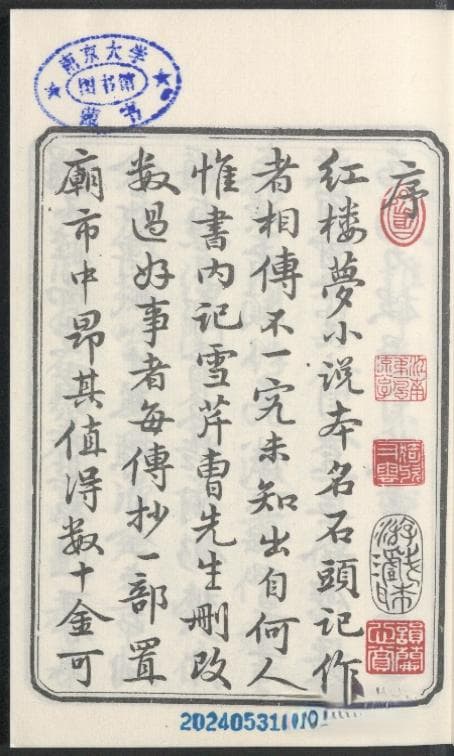 南京大学
图书馆
藏书
序
红楼夢小说本名石頭记作
者相傳不一究未知出自何人
惟書内记雪芹曹先生刪改
数过好事者每傳抄一部置
廟市中昂其值得数十金可
游戏
20240531